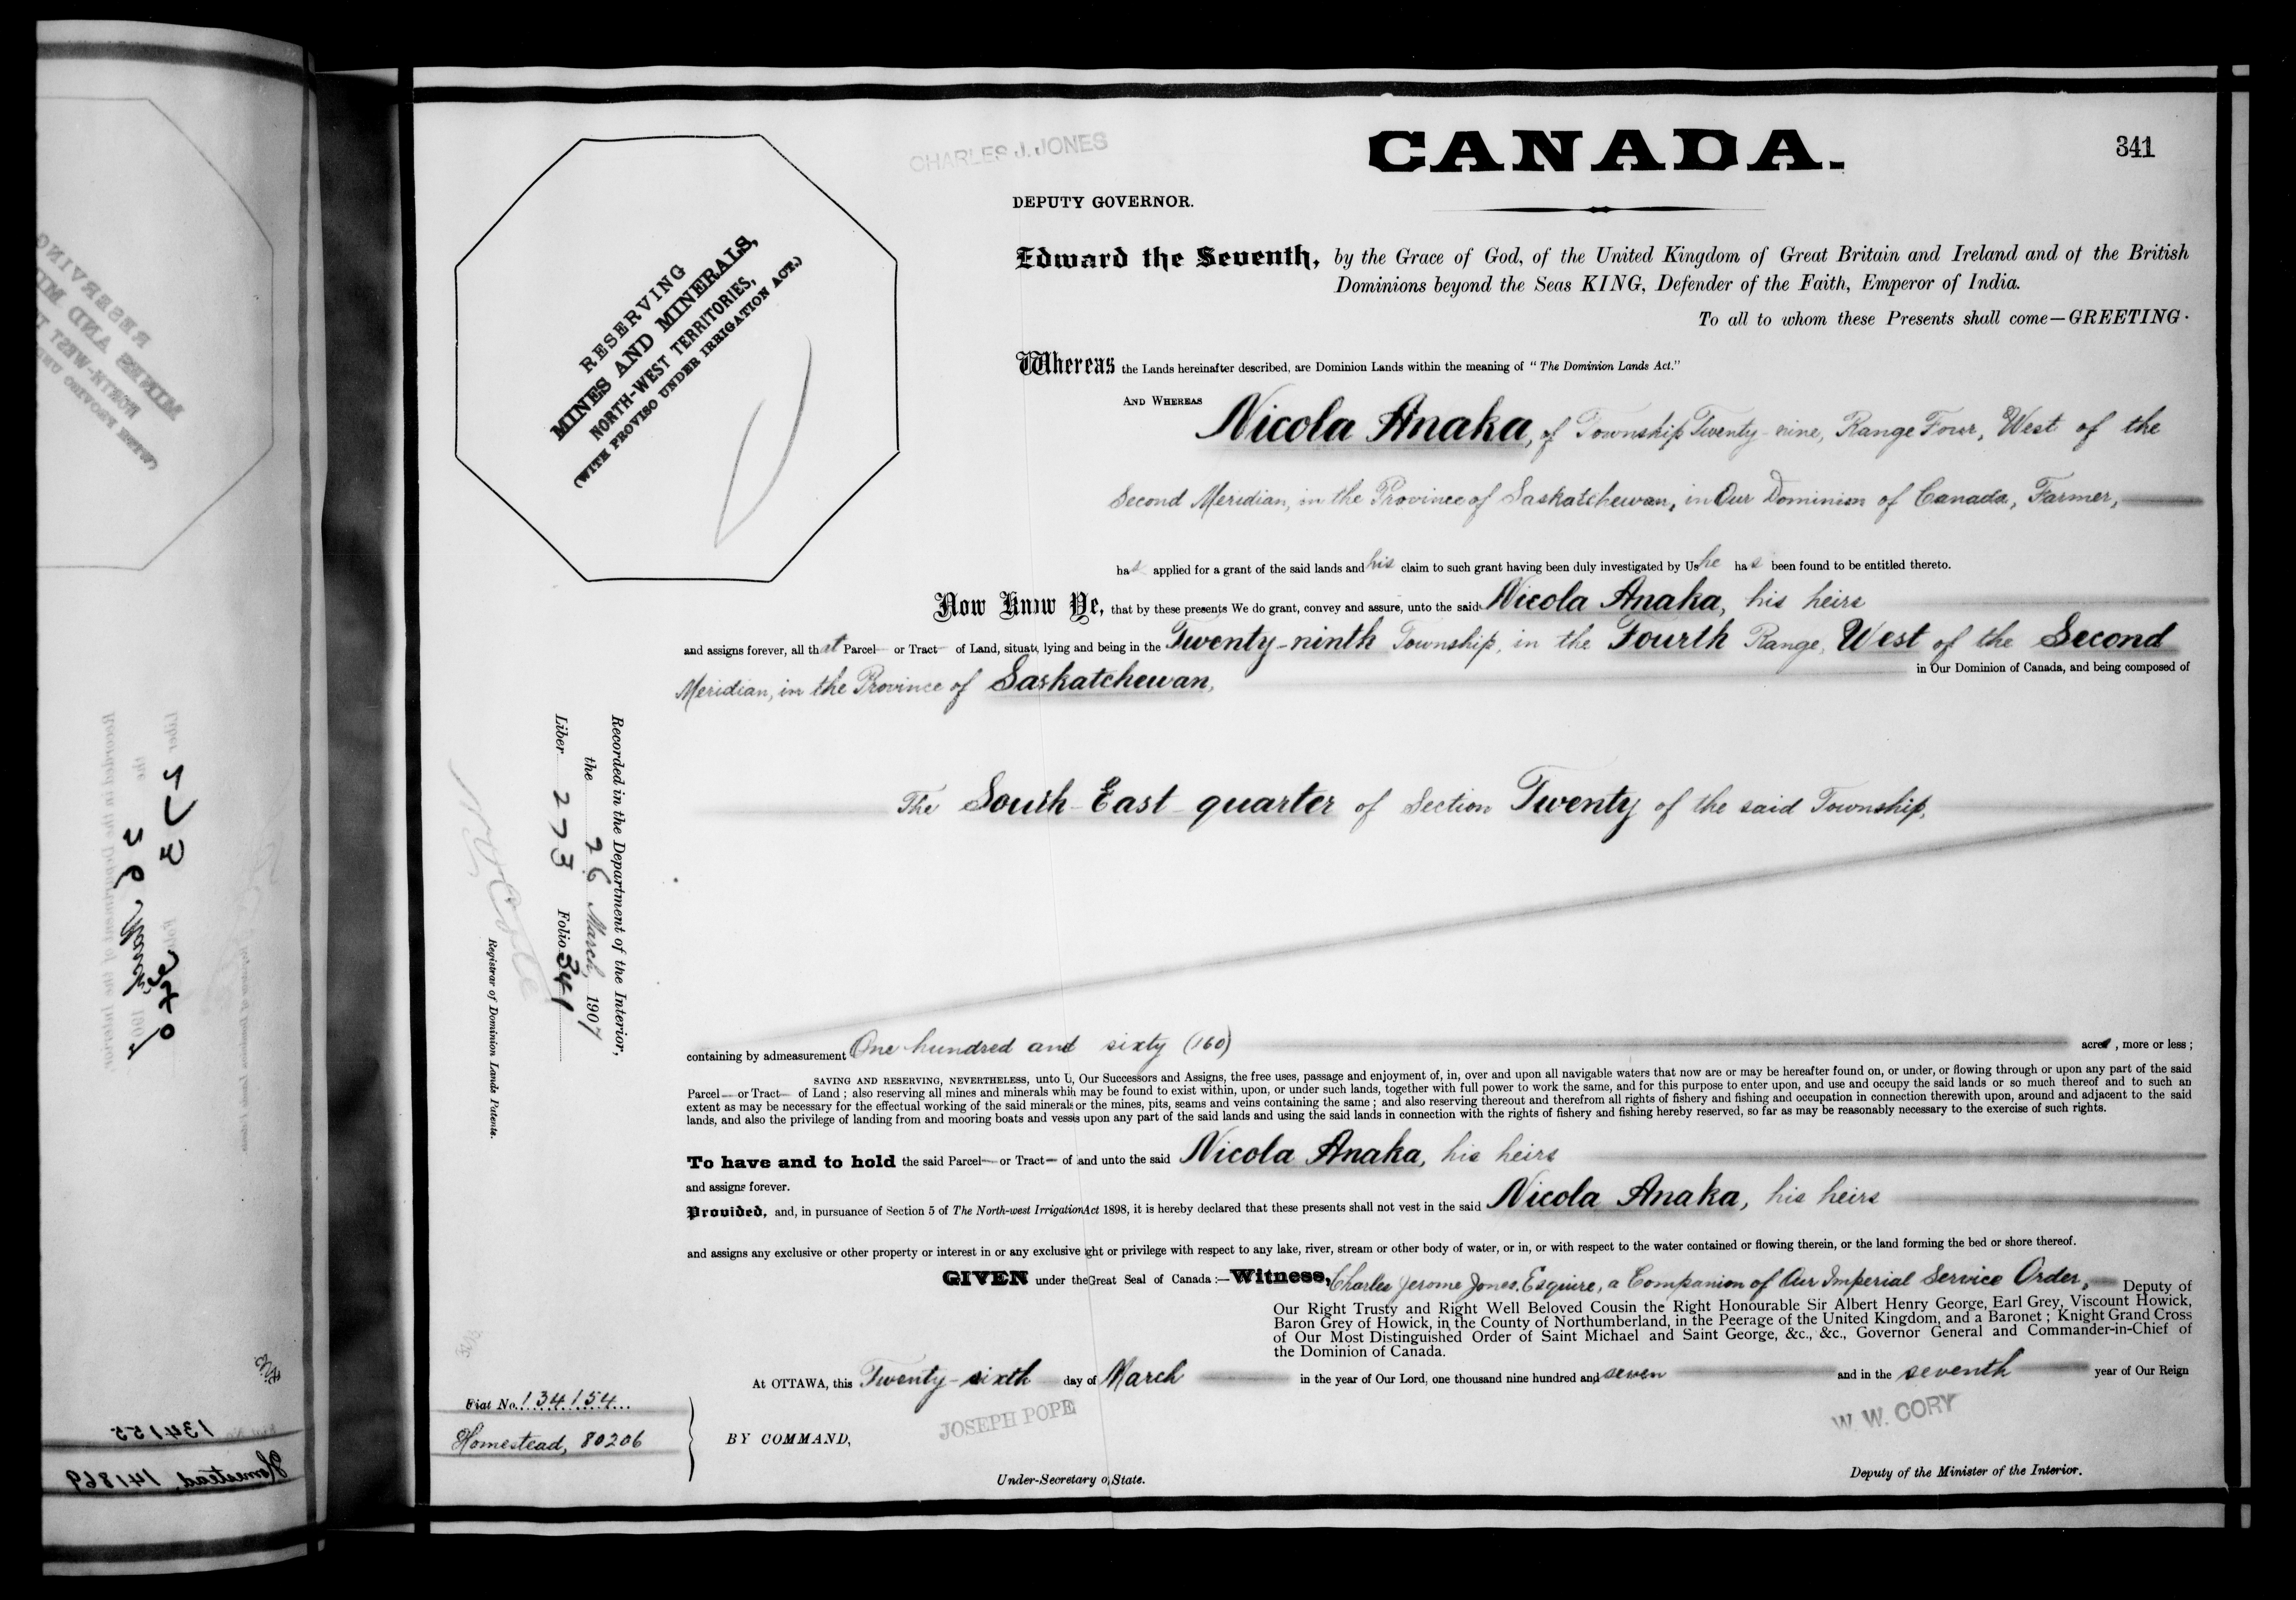 341
CHARLES J. JONES
CANADA.
DEPUTY GOVERNOR.
RESERVING
MINES AND MINERALS,
NORTH-WEST TERRITORIES,
(WITH PROVISO UNDER IRRIGATION ACT.)
Edward the Seventh, by the Grace of God, of the United Kingdom of Great Britain and Ireland and of the British
Dominions beyond the Seas KING, Defender of the Faith, Emperor of India.
To all to whom these Presents shall come—GREETING.
Whereas the Lands hereinafter described, are Dominion Lands within the meaning of "The Dominion Lands Act."
AND WHEREAS Nicola Anaka, of Township Twenty-nine, Range Four, West of the
Second Meridian, in the Province of Saskatchewan, in Our Dominion of Canada, Farmer,
has applied for a grant of the said lands and his claim to such grant having been duly investigated by Us he has been found to be entitled thereto.
Now Know Ye, that by these presents We do grant, convey and assure, unto the said Nicola Anaka, his heirs
and assigns forever, all that Parcel or Tract of Land, situate, lying and being in the Twenty-ninth Township, in the Fourth Range, West of the Second
Meridian, in the Province of Saskatchewan, in Our Dominion of Canada, and being composed of
The South-East quarter of Section Twenty of the said Township,
Recorded in the Department of the Interior,
the 26 March, 1907
Liber 273 Folio 341
Registrar of Dominion Lands Patents.
containing by admeasurement One hundred and sixty (160) acres, more or less ;
SAVING AND RESERVING, NEVERTHELESS, unto U, Our Successors and Assigns, the free uses, passage and enjoyment of, in, over and upon all navigable waters that now are or may be hereafter found on, or under, or flowing through or upon any part of the said
Parcel or Tract of Land ; also reserving all mines and minerals whih may be found to exist within, upon, or under such lands, together with full power to work the same, and for this purpose to enter upon, and use and occupy the said lands or so much thereof and to such an
extent as may be necessary for the effectual working of the said minerals or the mines, pits, seams and veins containing the same ; and also reserving thereout and therefrom all rights of fishery and fishing and occupation in connection therewith upon, around and adjacent to the said
lands, and also the privilege of landing from and mooring boats and vessls upon any part of the said lands and using the said lands in connection with the rights of fishery and fishing hereby reserved, so far as may be reasonably necessary to the exercise of such rights.
To have and to hold the said Parcel or Tract of and unto the said Nicola Anaka, his heirs
and assigns forever.
Provided, and, in pursuance of Section 5 of The North-west Irrigation Act 1898, it is hereby declared that these presents shall not vest in the said Nicola Anaka, his heirs
and assigns any exclusive or other property or interest in or any exclusive ght or privilege with respect to any lake, river, stream or other body of water, or in, or with respect to the water contained or flowing therein, or the land forming the bed or shore thereof.
GIVEN under the Great Seal of Canada :—Witness, Charles Jerome Jones, Esquire, a Companion of Our Imperial Service Order, Deputy of
Our Right Trusty and Right Well Beloved Cousin the Right Honourable Sir Albert Henry George, Earl Grey, Viscount Howick,
Baron Grey of Howick, in the County of Northumberland, in the Peerage of the United Kingdom, and a Baronet ; Knight Grand Cross
of Our Most Distinguished Order of Saint Michael and Saint George, &c., &c., Governor General and Commander-in-Chief of
the Dominion of Canada.
At OTTAWA, this Twenty-sixth day of March in the year of Our Lord, one thousand nine hundred and seven and in the seventh year of Our Reign
Fiat No. 134154
Homestead, 80206
BY COMMAND,
JOSEPH POPE
Under-Secretary of State.
W. W. CORY
Deputy of the Minister of the Interior.